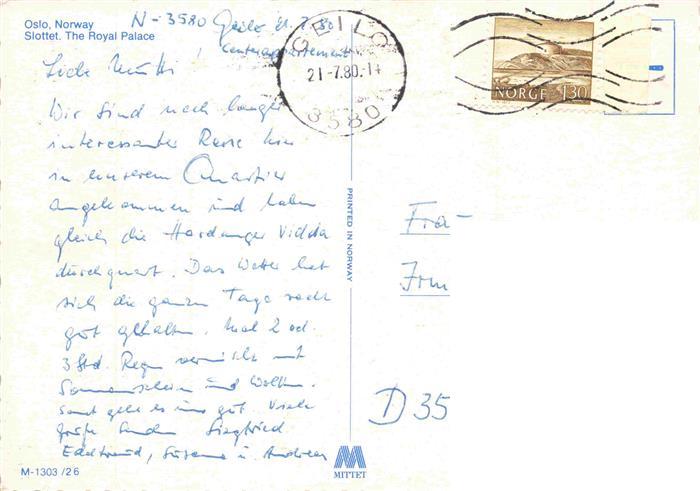 Oslo, Norway
Slottet. The Royal Palace
N-3580 Geilo 21.7.80
GEILO
21-7.80.-14
3580
NORGE 130
Liebe Mutti!
Wir sind nach langer
interessanter Reise hier
in unserem Quartier
angekommen und haben
gleich die Hardanger Vidda
durchquert. Das Wetter hat
sich die ganzen Tage recht
gut gehalten. Mal 2 od.
3 Std. Regen vermischt mit
Sonnenschein und Wolken.
Sonst geht es uns gut. Viele
Grüße senden Siegfried
Edeltraud, Susanne u. Andreas
PRINTED IN NORWAY
Fra-
Irm
D 35
M-1303/26
MITTET